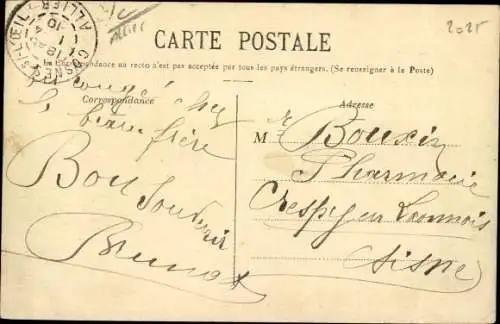 Allier
2025
CARTE POSTALE
La Correspondance au recto n'est pas acceptée par tous les pays étrangers. (Se renseigner à la Poste)
Correspondance
Adresse
chez
beau frère
Bon
Souvenir
M r Bouxin
Pharmacie
Crespy en Laonnois
Aisne